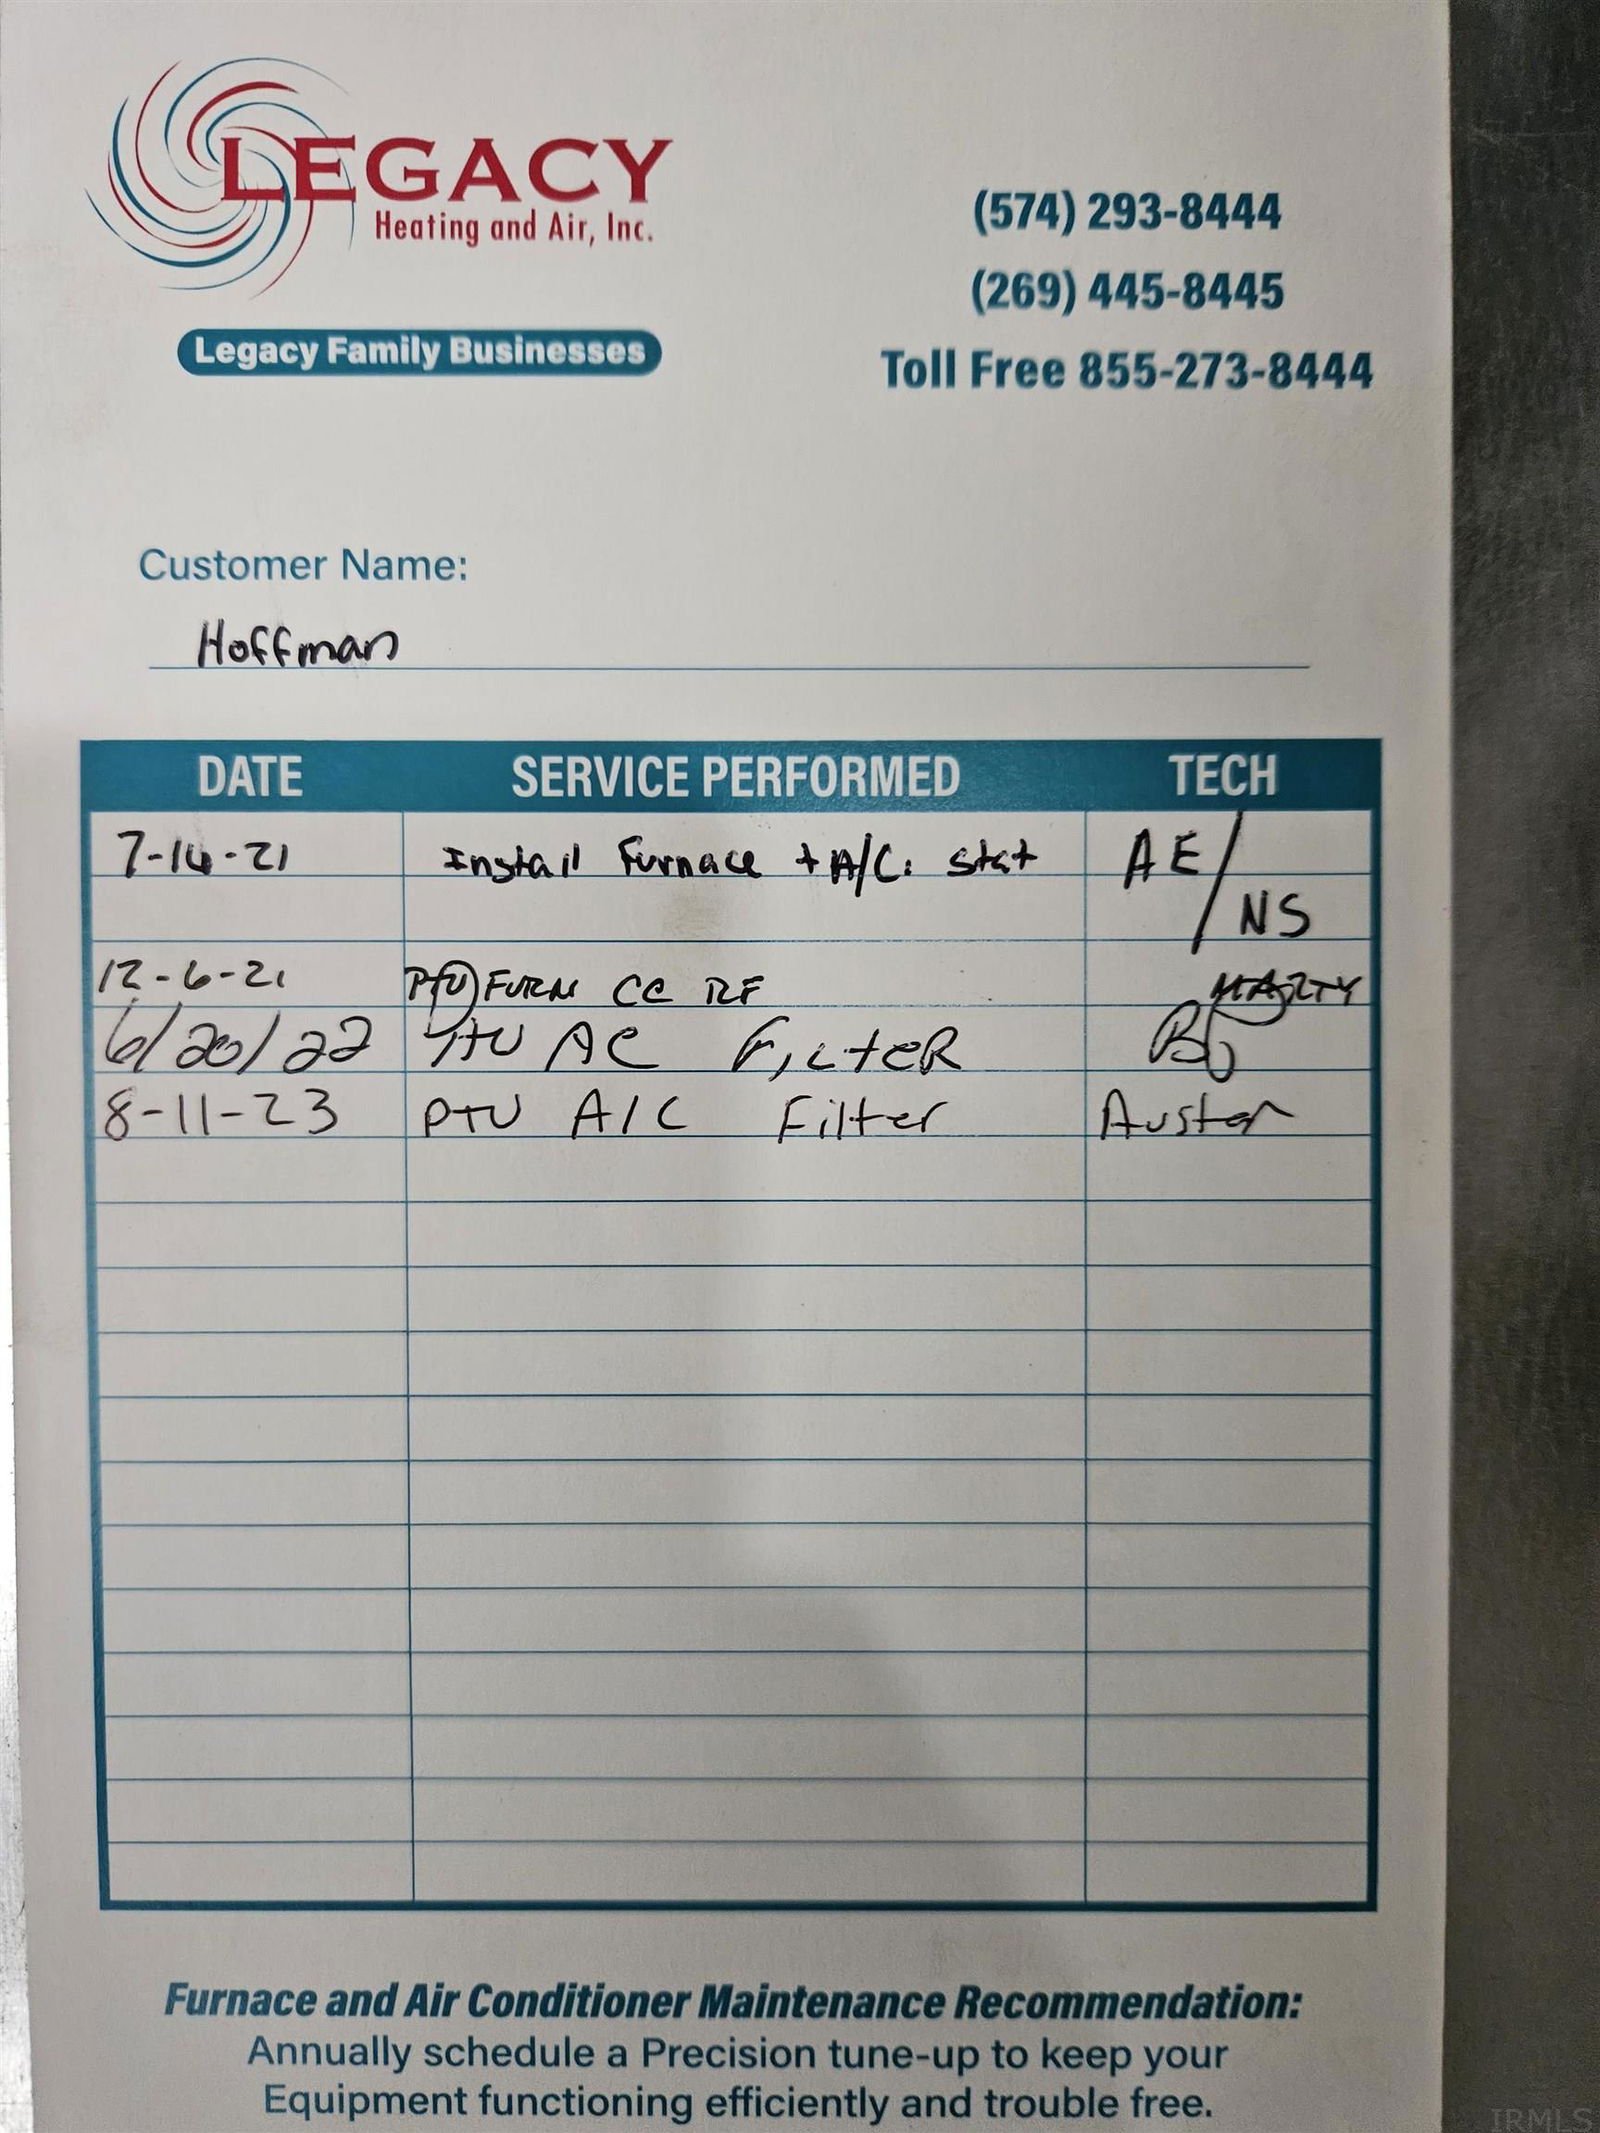 LEGACY
Heating and Air, Inc.
Legacy Family Businesses
(574) 293-8444
(269) 445-8445
Toll Free 855-273-8444
Customer Name:
Hoffman
DATE SERVICE PERFORMED TECH
7-14-21 Install Furnace + A/C. stat AE/
NS
12-6-21 PTU FURN CC RF MARTY
6/20/22 PTU AC FILTER
8-11-23 PTU A/C Filter Austen
Furnace and Air Conditioner Maintenance Recommendation:
Annually schedule a Precision tune-up to keep your
Equipment functioning efficiently and trouble free.
IRMLS